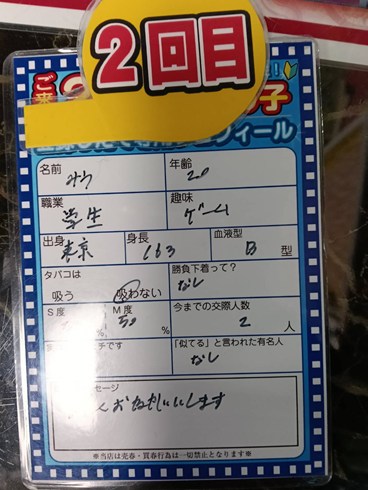 2回目
ご来
子
フィール
名前
年齢
20
職業
趣味
学生
ゲーム
出身
身長
血液型
東京
163
B 型
タバコは
勝負下着って?
吸う 吸わない
なし
S度
M度
今までの交際人数
% 50 %
2 人
チです
「似てる」と言われた有名人
なし
セージ
おねがいします
※当店は売春・買春行為は一切禁止となります※